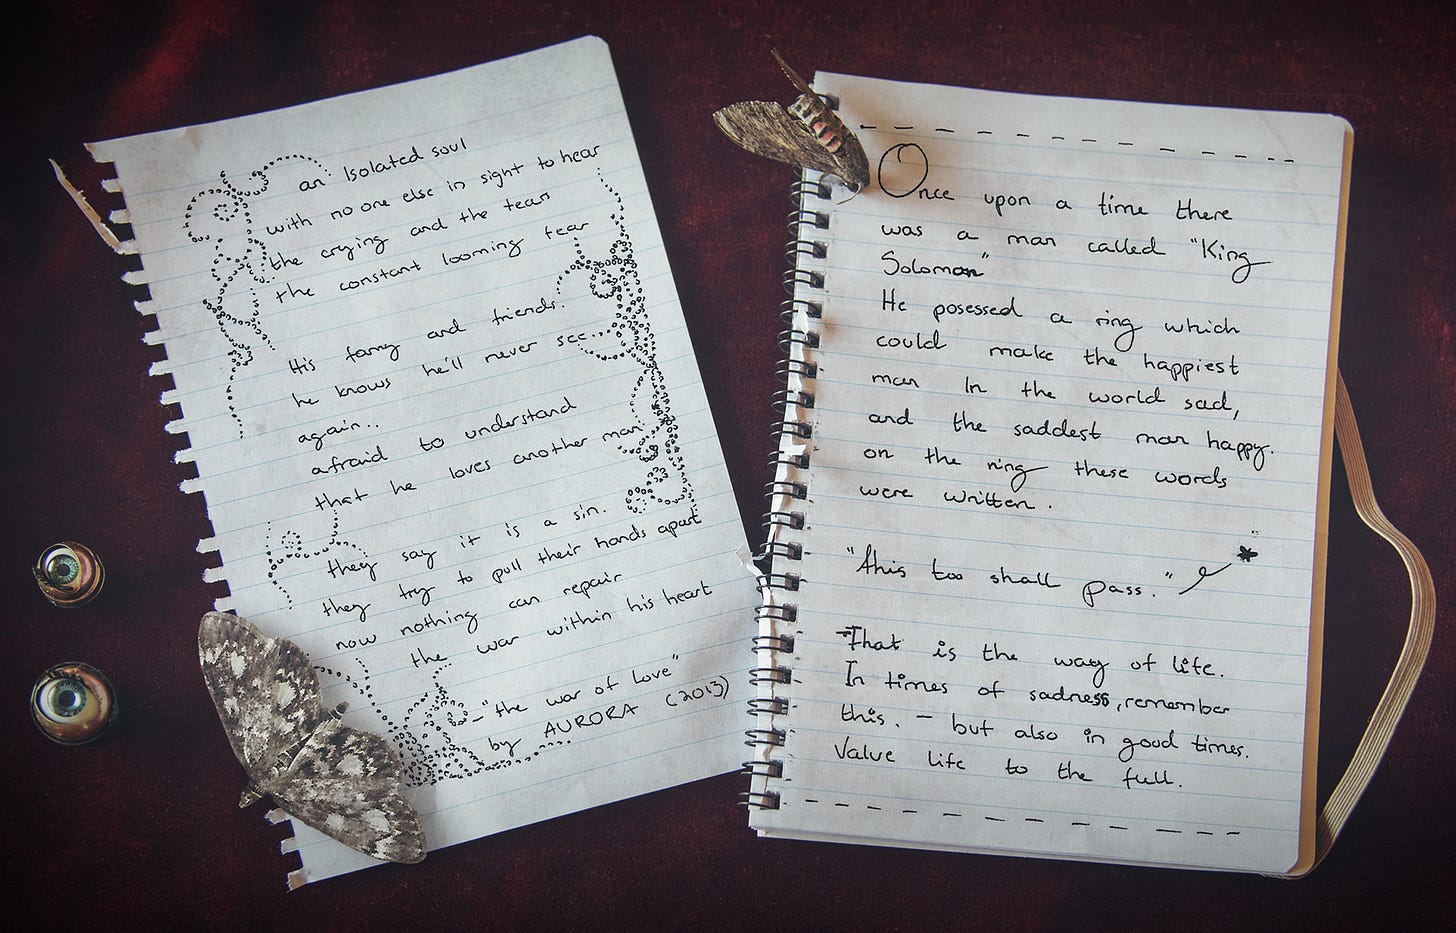 an Isolated soul
with no one else in sight to hear
the crying and the tears
the constant looming fear
His famy and friends.
he knows he'll never see...
again..
afraid to understand
that he loves another man.
they say it is a sin.
they try to pull their hands apart
now nothing can repair
the war within his heart
- "the war of love"
by AURORA (2013)
Once upon a time there
was a man called "King
Soloman"
He posessed a ring which
could make the happiest
man In the world sad,
and the saddest man happy.
on the ring these words
were written.
"this too shall pass."
That is the way of life.
In times of sadness, remember
this. - but also in good times.
Value life to the full.